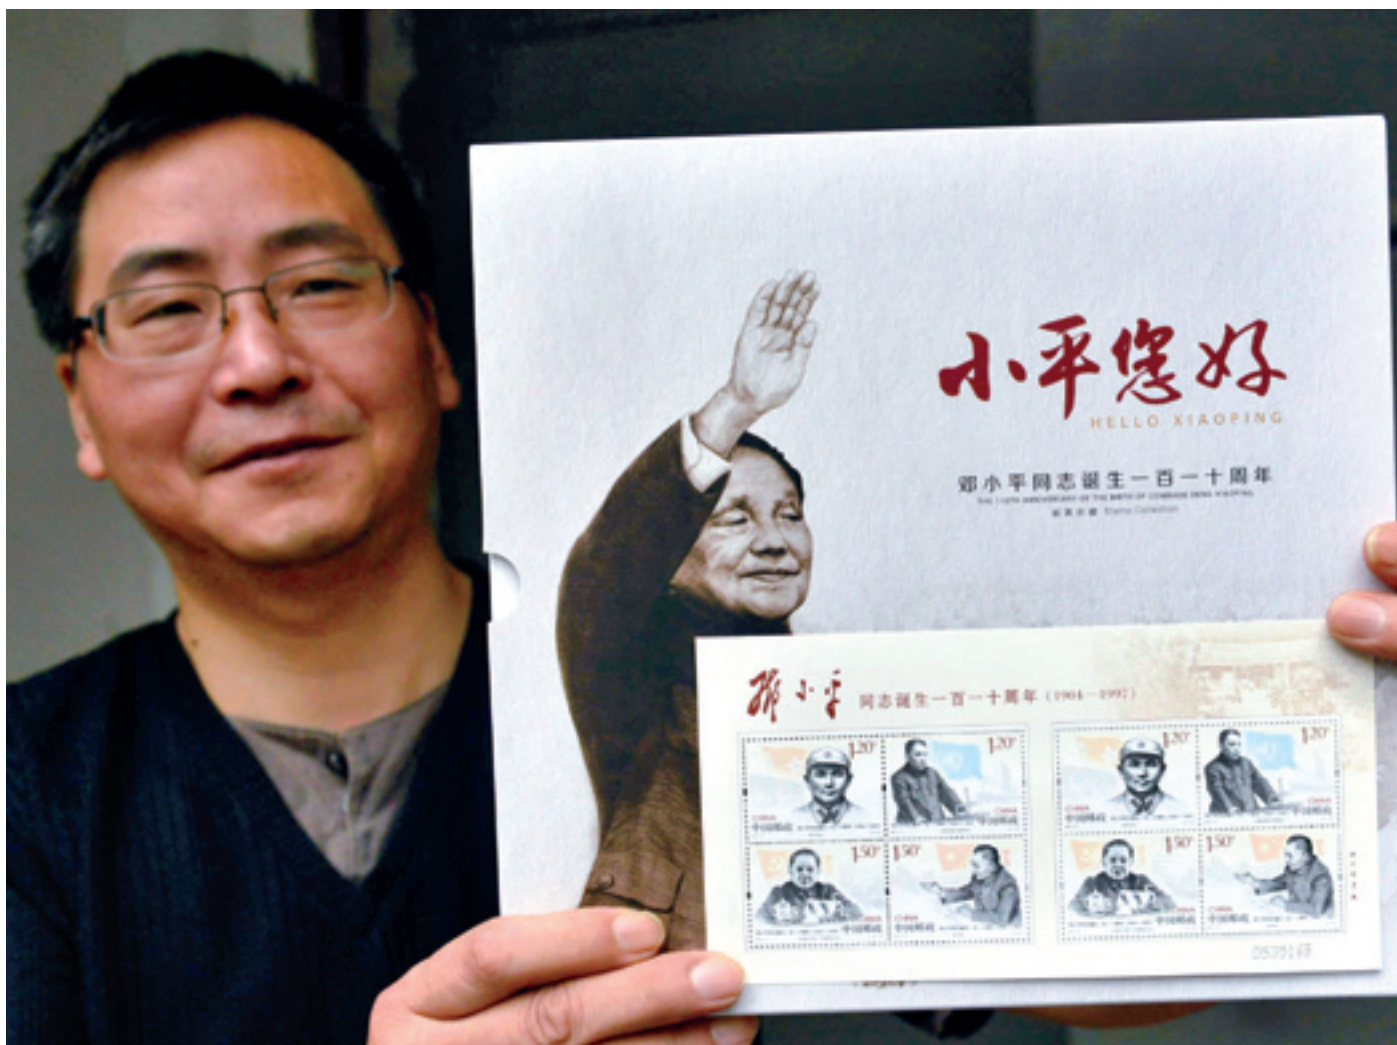 小平您好
HELLO XIAOPING
邓小平同志诞生一百一十周年
THE 110TH ANNIVERSARY OF THE BIRTH OF COMRADE DENG XIAOPING
Stamp Collection
邓小平 同志诞生一百一十周年(1904—1997)
1.20元
1.20元
1.20元
1.20元
CHINA
中国邮政
CHINA
中国邮政
CHINA
中国邮政
CHINA
中国邮政
1.50元
1.50元
1.50元
1.50元
CHINA
中国邮政
CHINA
中国邮政
CHINA
中国邮政
CHINA
中国邮政